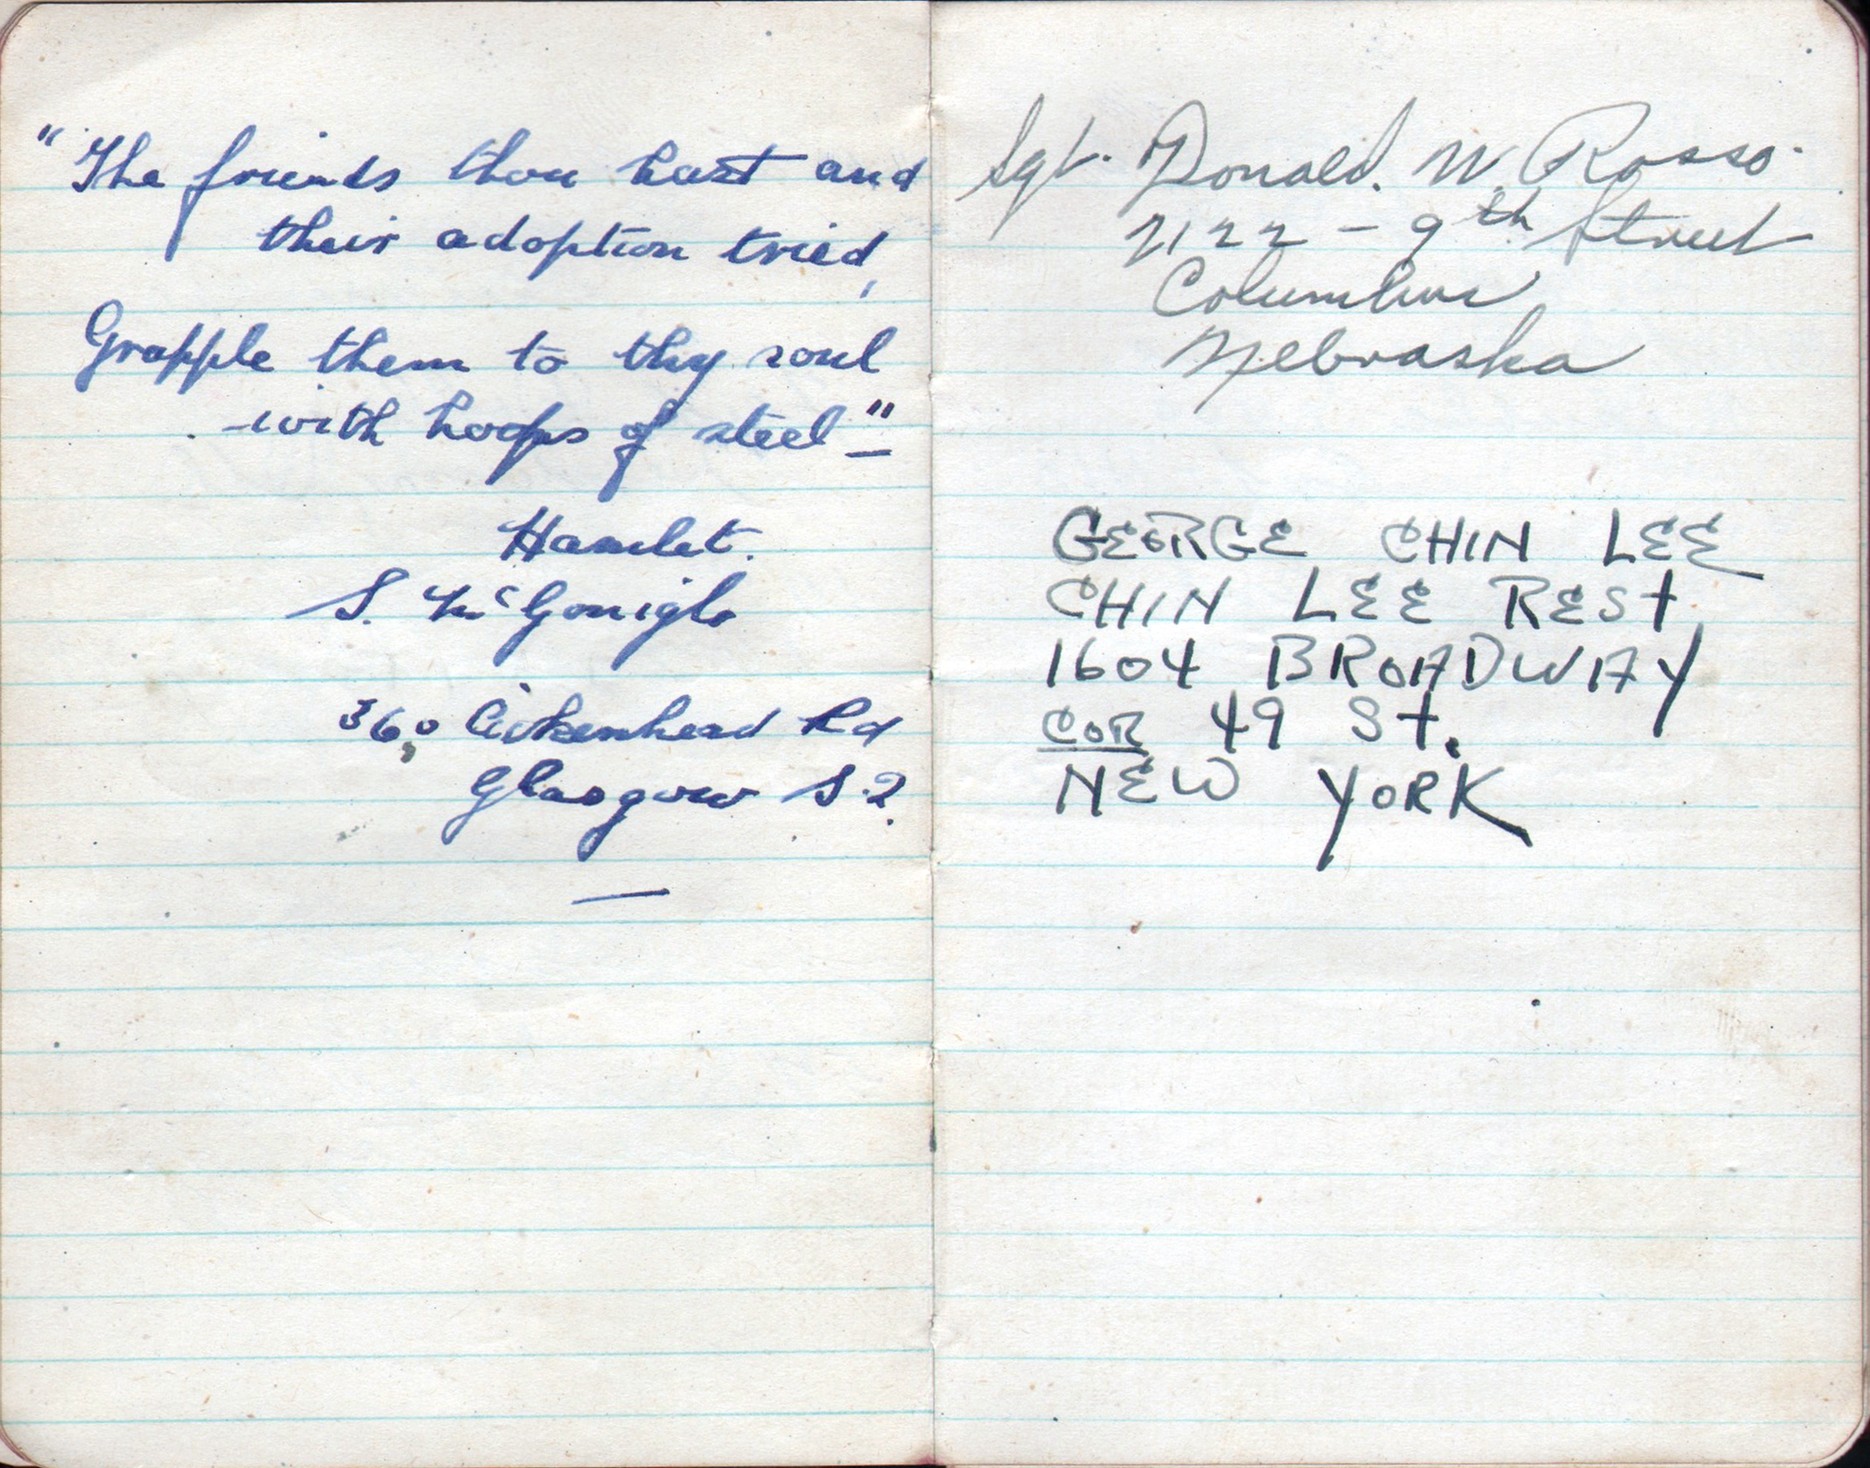 "The friends thou hast and
their adoption tried,
Grapple them to thy soul
with hoops of steel"
Hamlet.
S. McGonigle
360 Aikenhead Rd
Glasgow S.2.
Sgt. Donald. W. Rosso.
2122 - 9th Street
Columbus
Nebraska
GEORGE CHIN LEE
CHIN LEE REST
1604 BROADWAY
COR 49 St.
NEW YORK